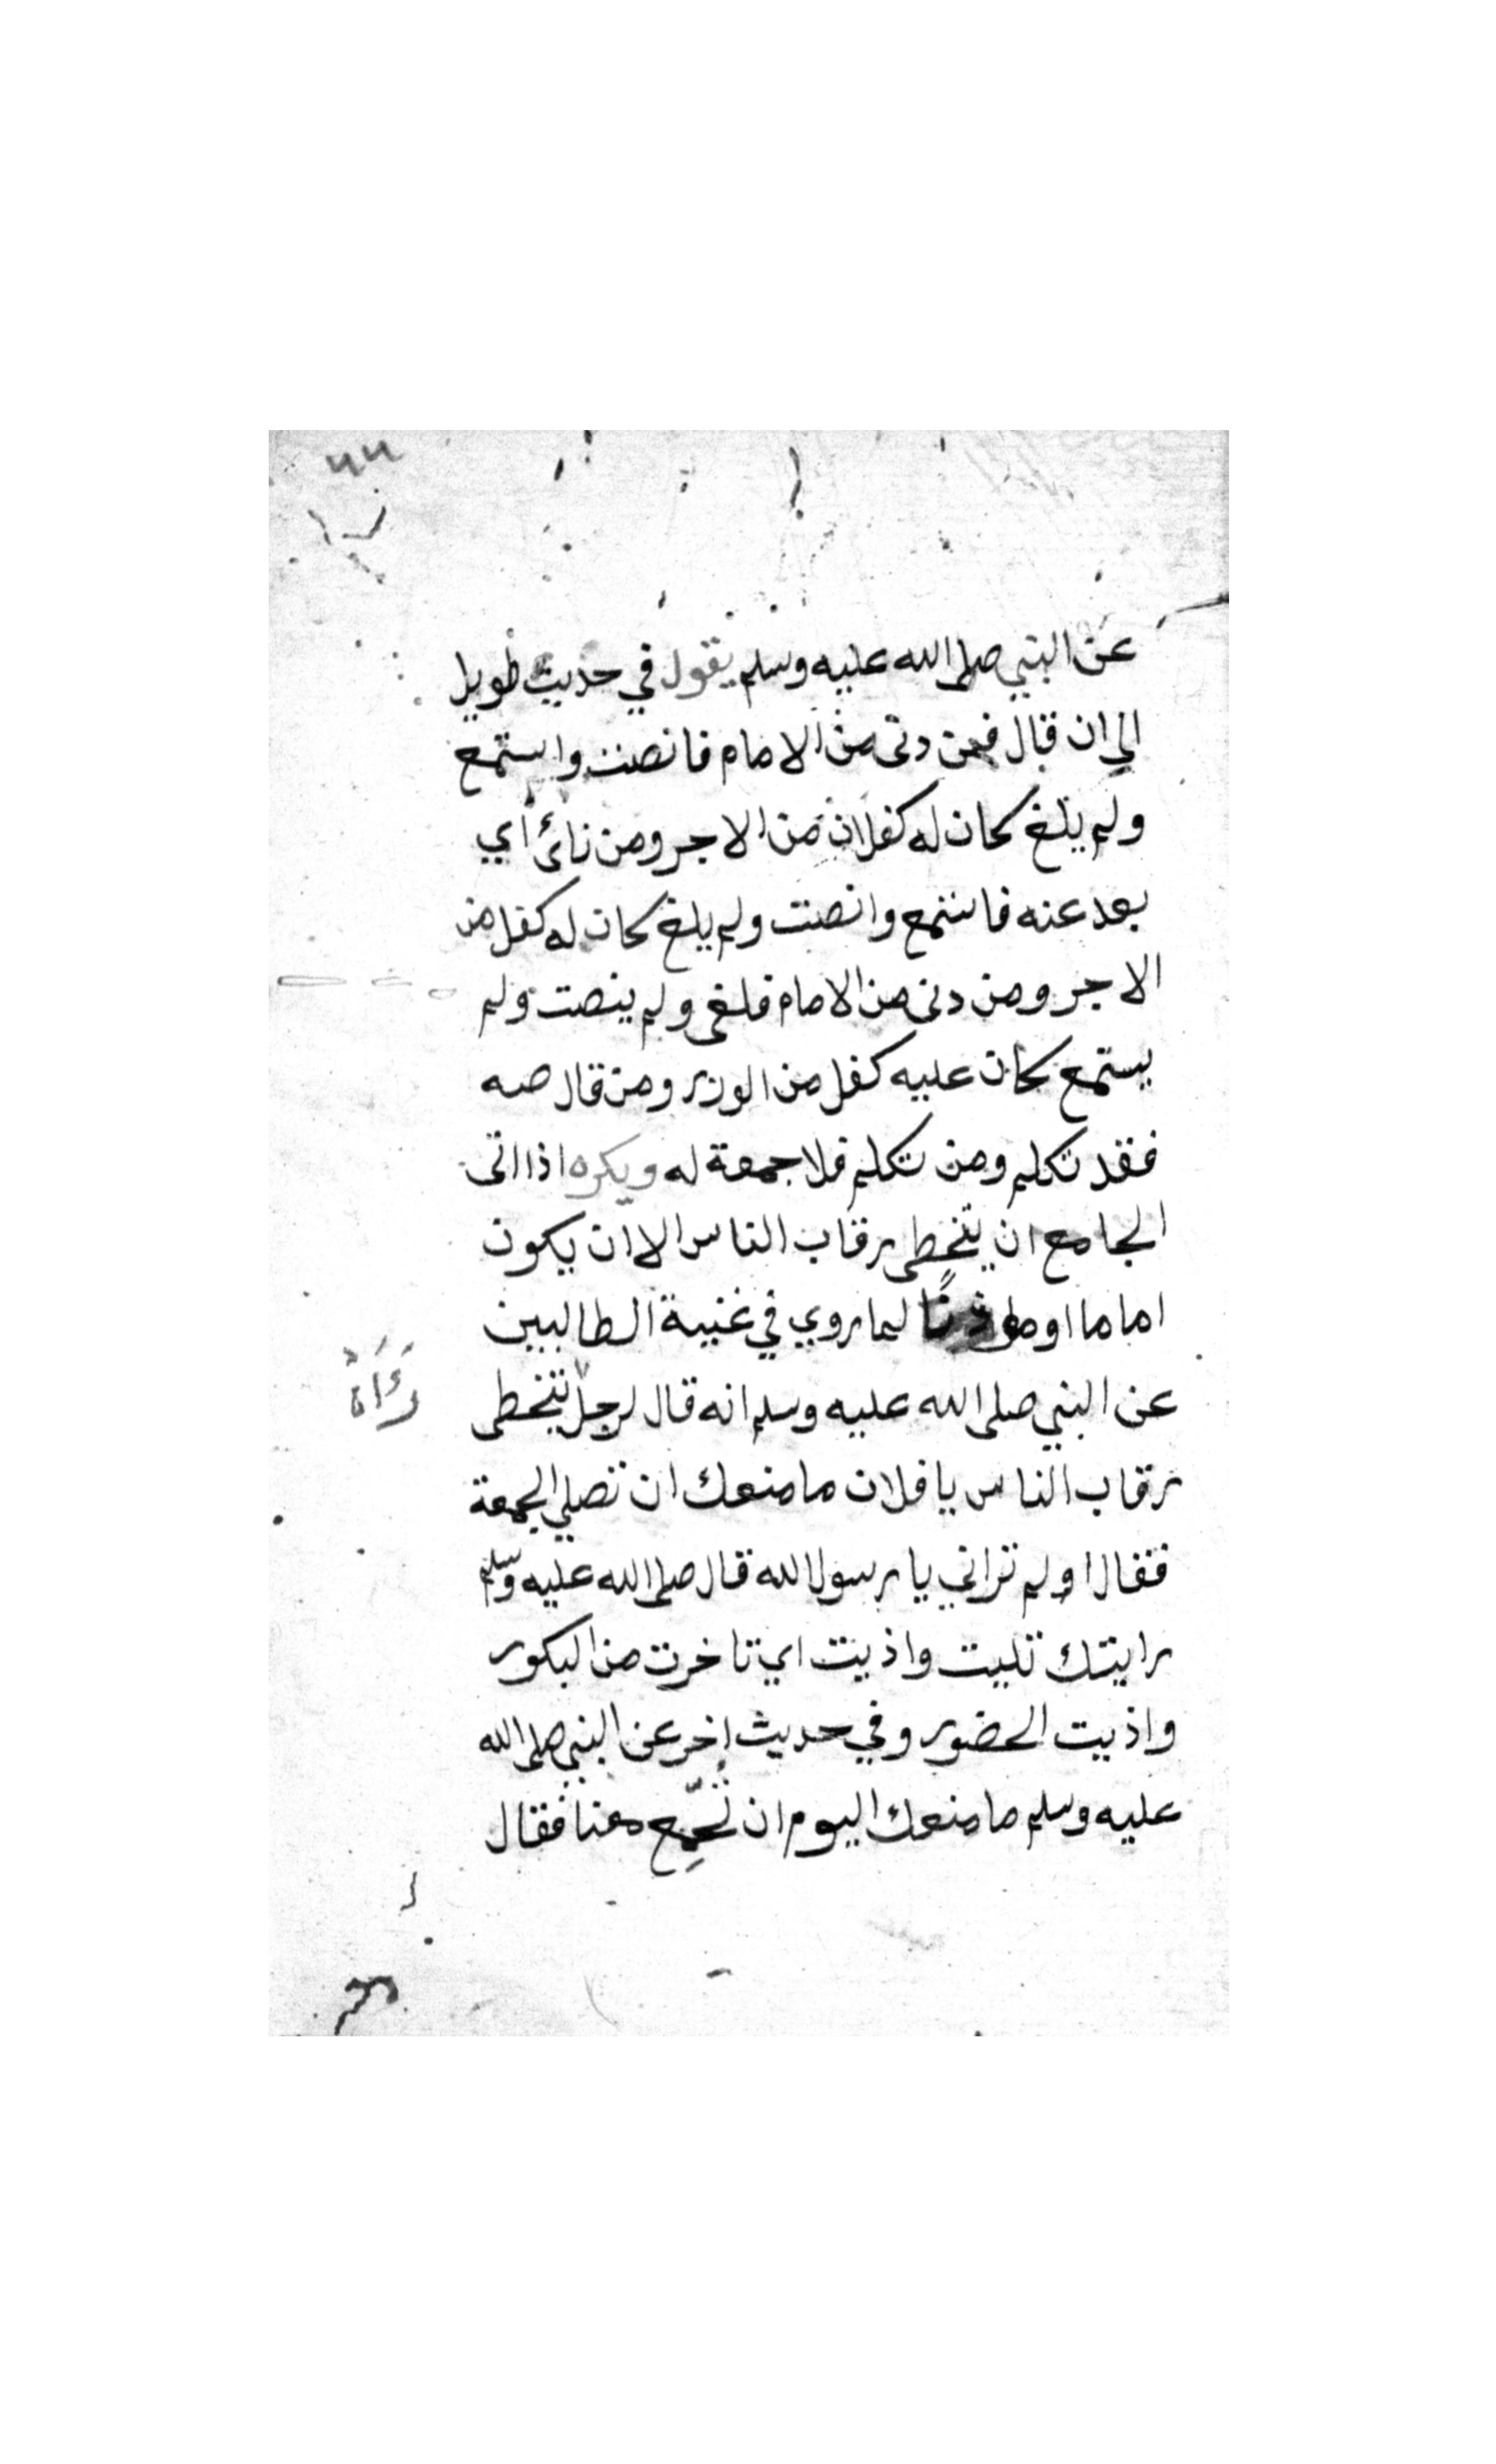 عن النبي صلى الله عليه وسلم يقول في حديث طويل
الي ان قال فمن دنى من الامام فانصت واستمع
ولم يلغ كان له كفلان من الاجر ومن نائ أي
بعد عنه فاستمع وانصت ولم يلغ كان له كفل من
الاجر ومن دنى من الامام فلغى ولم ينصت ولم
يستمع كان عليه كفل من الوزر ومن قال صه
فقد تكلم ومن تكلم فلا جمعة له ويكره اذا اتى
الجامع ان يتخطى رقاب الناس الا ان يكون
اماما او موذنًا لما روي في غنيه الطالبين
عن النبي صلى الله عليه وسلم انه قال لرجل يتخطى
رَءَاهُ
رقاب الناس يا فلان ما منعك ان تصلي الجمعة
فقال اولم تراني يا رسول الله قال صلى الله عليه وسلم
رايتك تلبيت واذيت اي تاخرت من البكور
واذيت الحضور وفي حديث اخر عن النبي صلى الله
عليه وسلم ما منعك اليوم ان تُجَمِّع معنا فقال